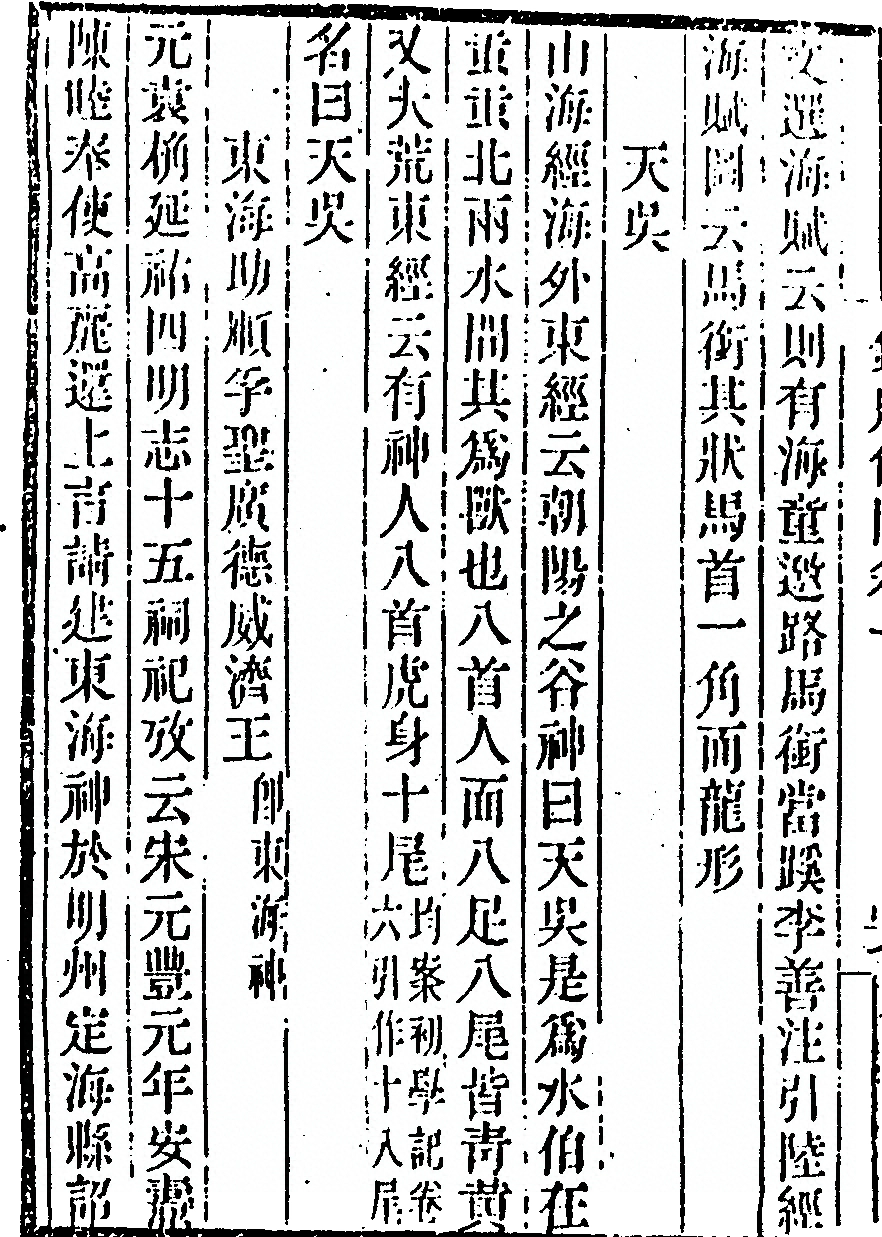 文選海賦云則有海童邀路馬銜當蹊李善注引陸經
海賦圖云馬銜其狀馬首一角而龍形
天吳
山海經海外東經云朝陽之谷神曰天吳是爲水伯在
北兩水間其爲獸也八首人面八足八尾皆青黃
又大荒東經云有神人八首虎身十尾均案初學記卷六引作十八尾
名曰天吳
東海助順孚聖廣德威濟王即東海神
元袁桷延祐四明志十五祠祀攷云宋元豐元年安燾
陳睦奉使高麗還上言請建東海神於明州定海縣詔